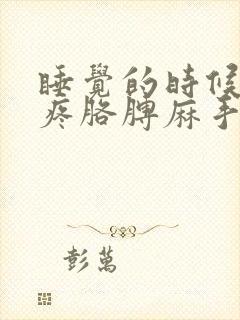 睡覺的時候
疼胳膊麻手
彭萬